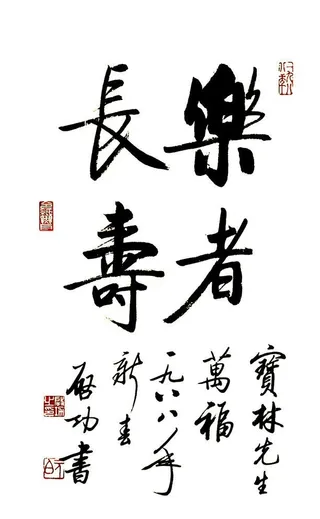 樂者
長壽
寶林先生
萬福
一九八八年
新春
啟功書